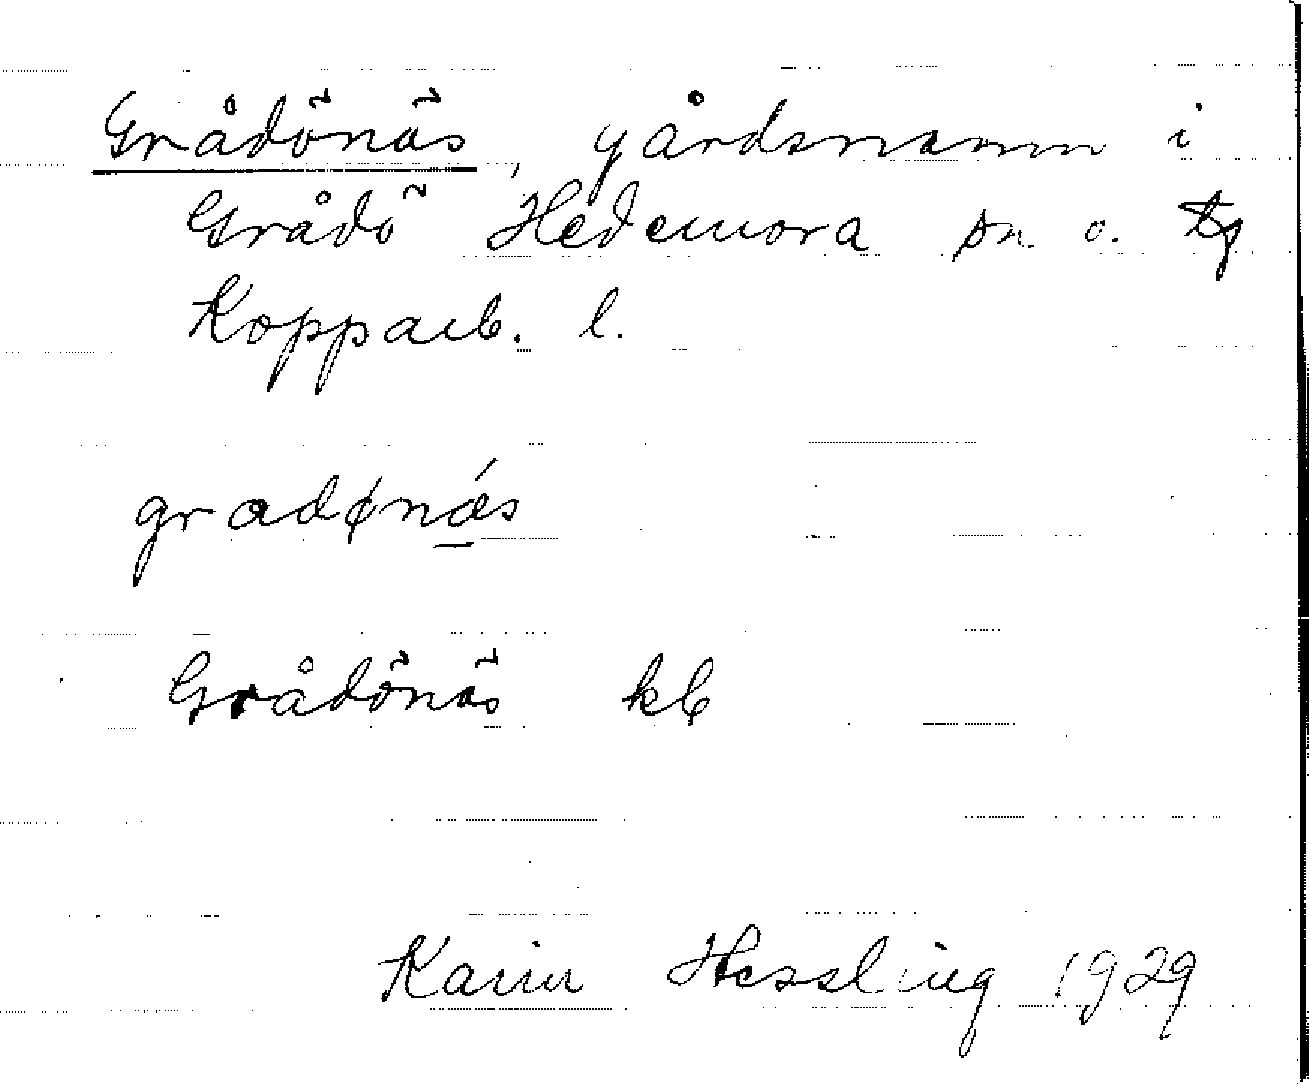 Grådönäs, gårdsnamn i
Grådö Hedemora sn o. tg
Kopparb. l.
gradønǽs
Grådönäs kb
Karin Hessling 1929